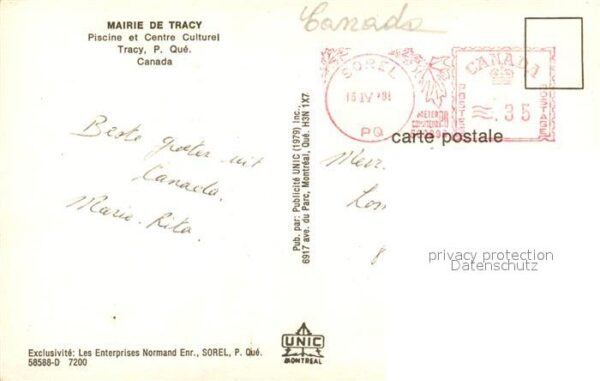 MAIRIE DE TRACY
Piscine et Centre Culturel
Tracy, P. Qué.
Canada
Canada
SOREL
15 IV '81
PQ
CANADA
.35
POSTES
POSTAGE
METER
carte postale
Beste groeten uit
Canada.
Marie-Rita.
Pub. par: Publicité UNIC (1979) Inc.
6917 ave. du Parc, Montréal, Qué. H3N 1X7
privacy protection
Datenschutz
Exclusivité: Les Enterprises Normand Enr., SOREL, P. Qué.
58588-D 7200
UNIC
MONTREAL